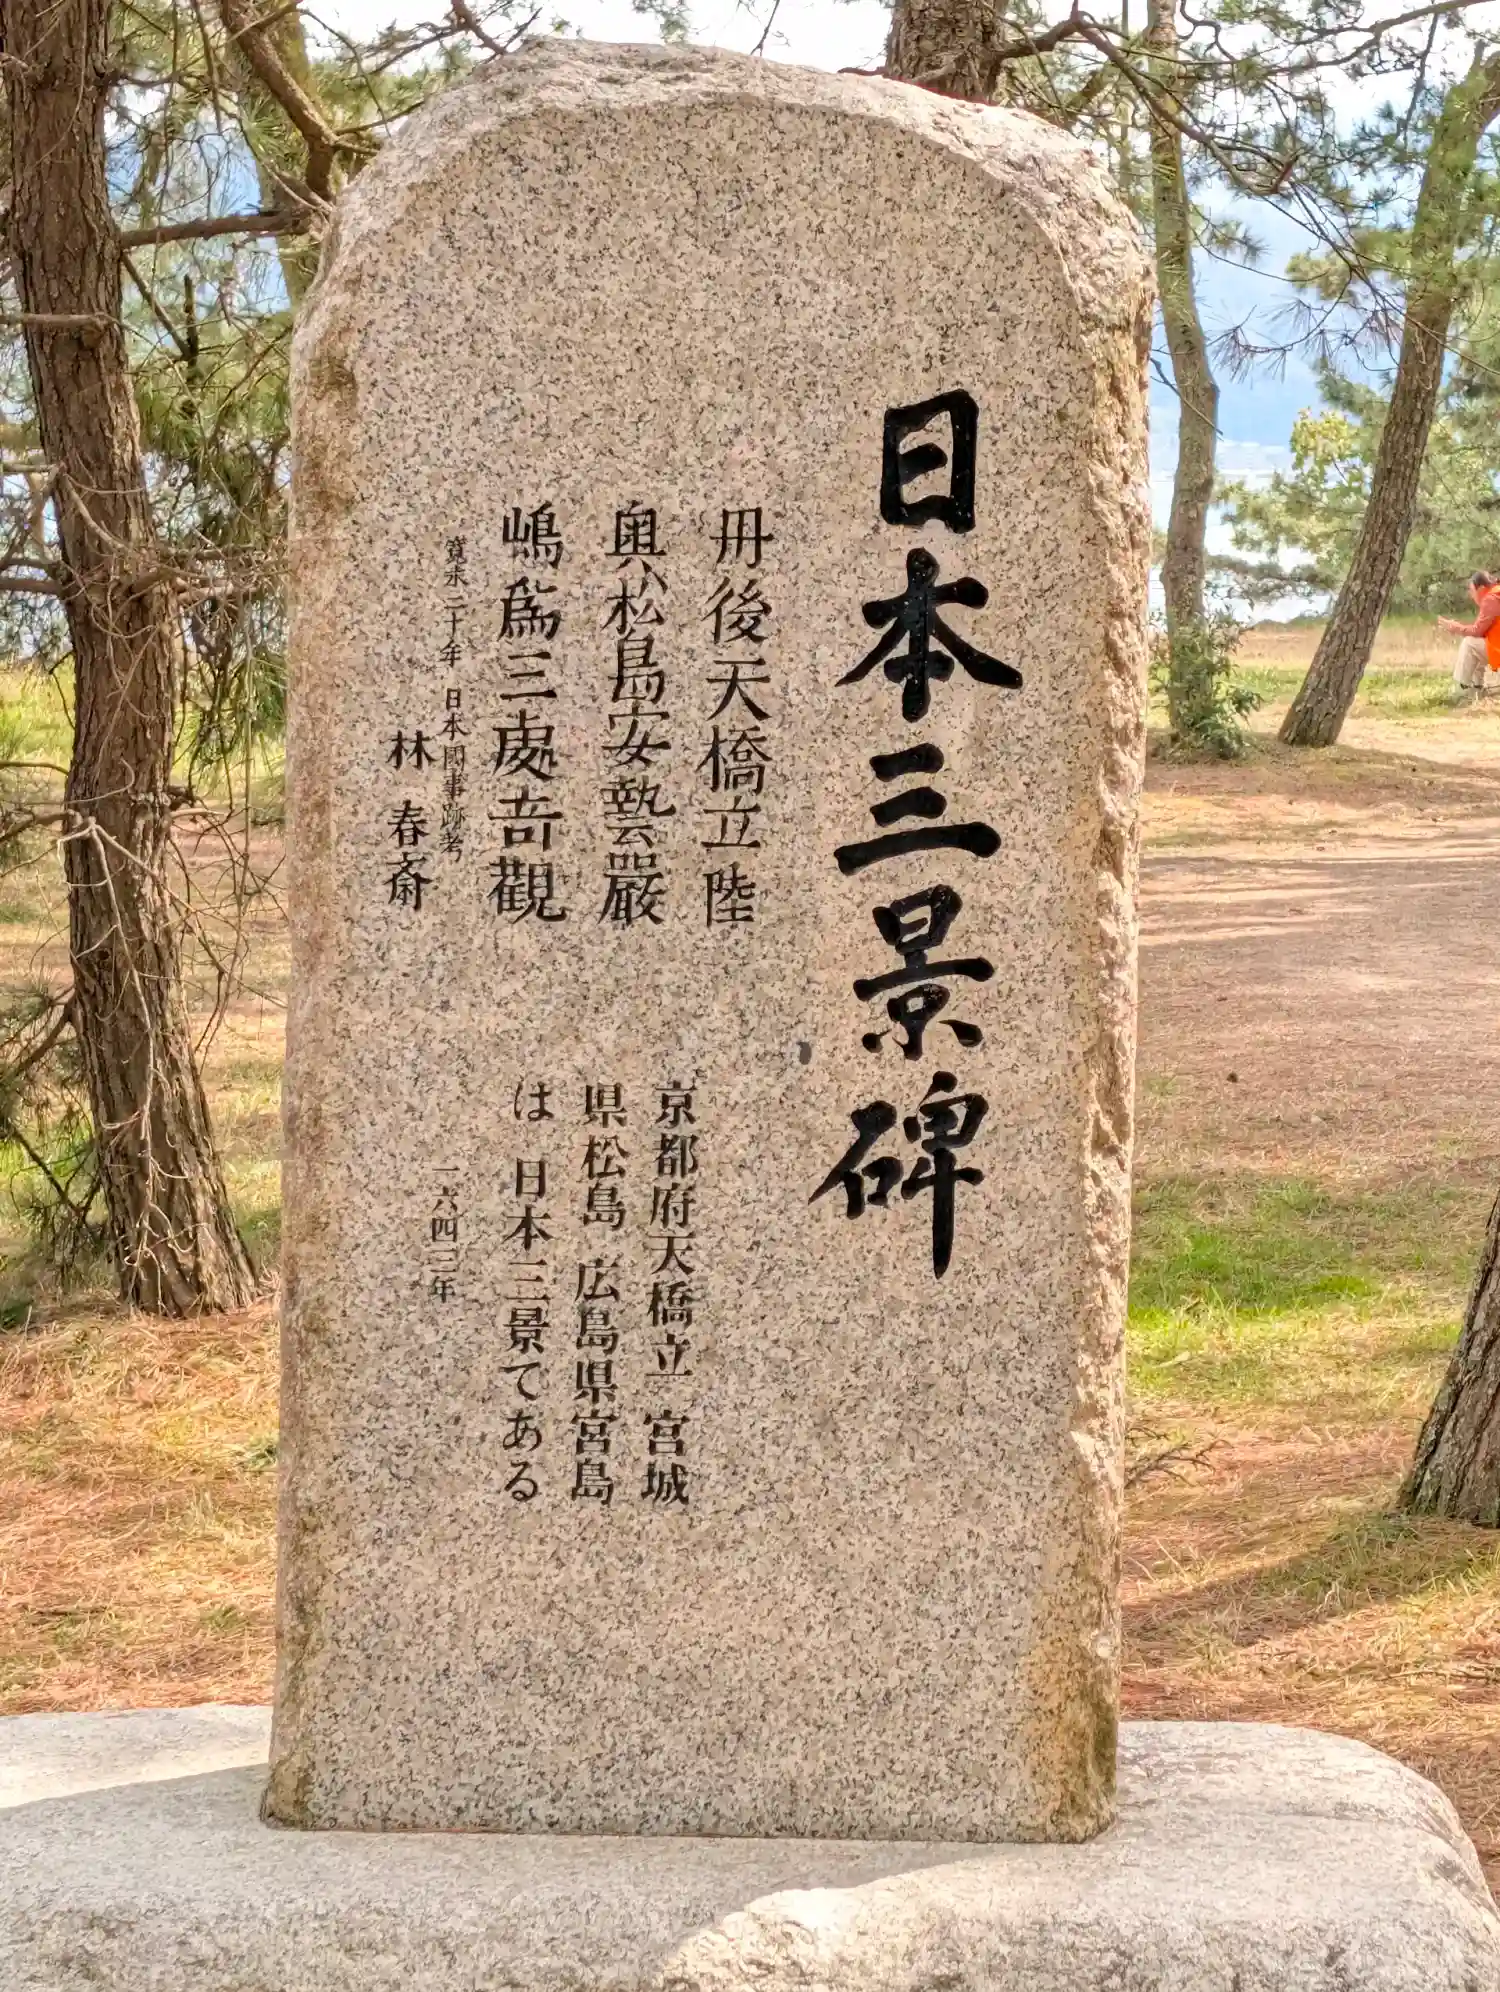 日本三景碑
丹後天橋立陸
奥松島安藝嚴
嶋爲三處奇觀
寛永二十年 日本國事跡考
林 春斎
京都府天橋立 宮城
県松島 広島県宮島
は 日本三景てある
一六四三年